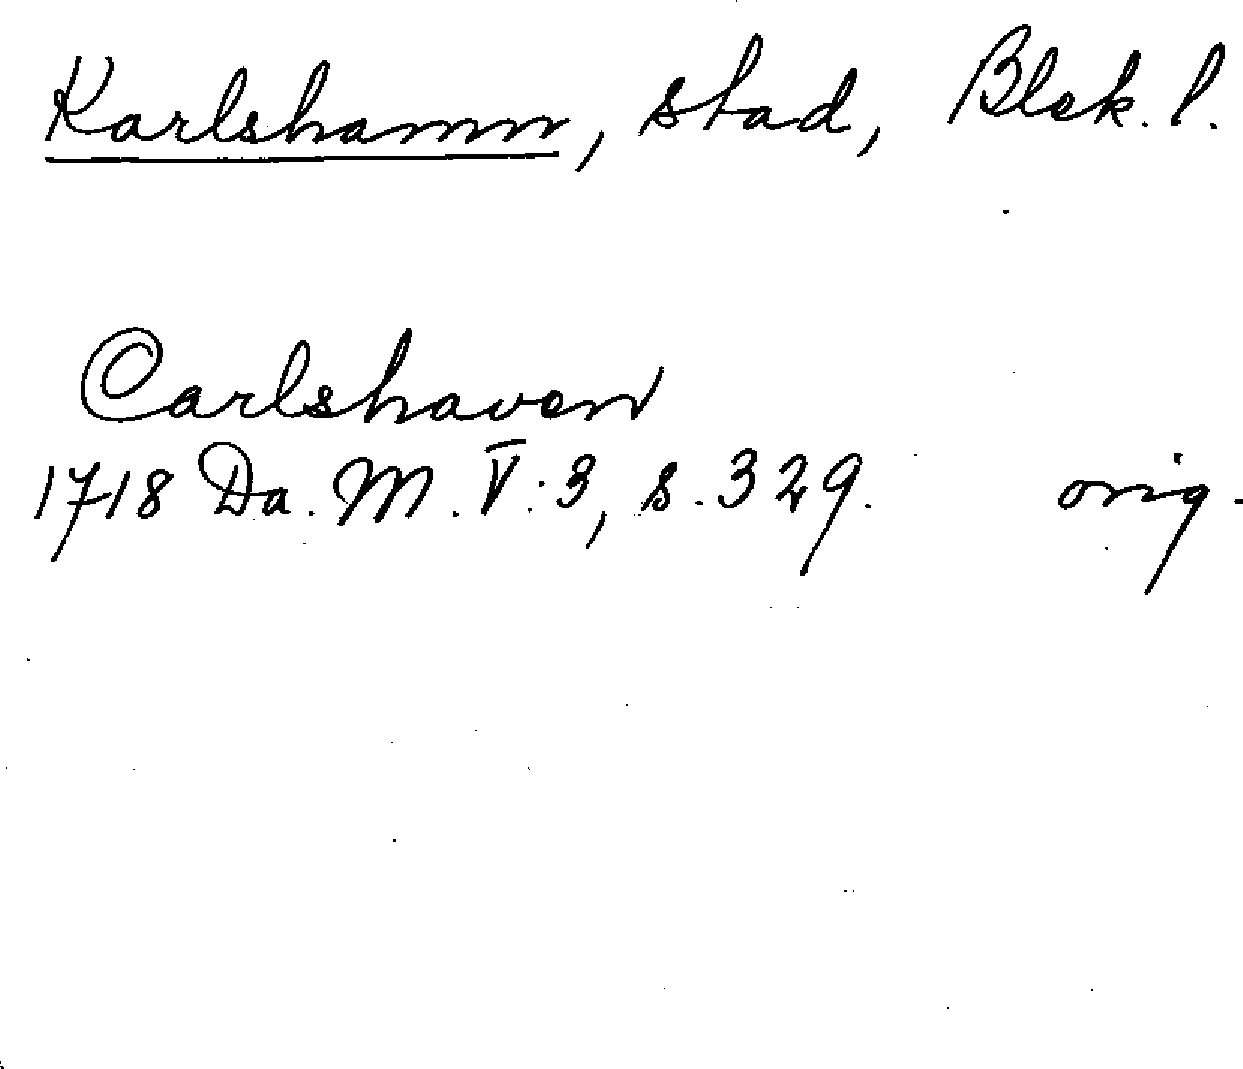 Karlshamn, stad, Blek. l.
Carlshaven
1718 Da. M. V:3, s. 329. orig.